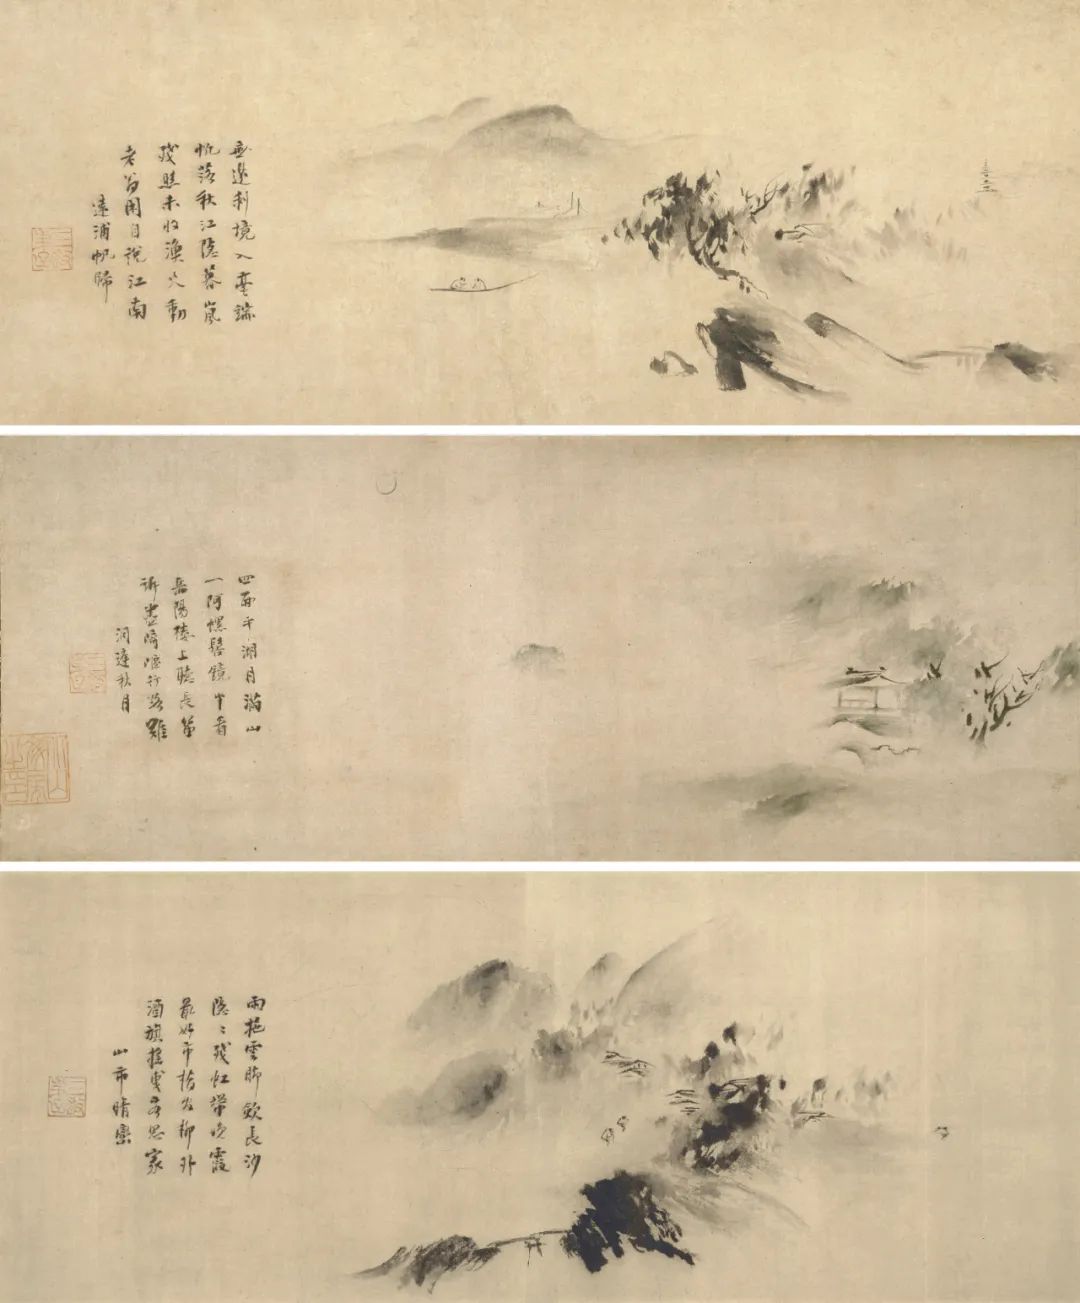 無邊刹境入毫端
帆落秋江隱暮嵐
殘照未收漁火動
老翁閑自說江南
遠浦帆歸
四面平湖月滿山
一阿螺髻鏡中看
岳陽樓上聽長笛
訴盡崎嶇行路難
洞庭秋月
雨拖雲脚斂長沙
隱〻殘虹帶晚霞
最好市橋官柳外
酒旗搖曳客思家
山市晴巒